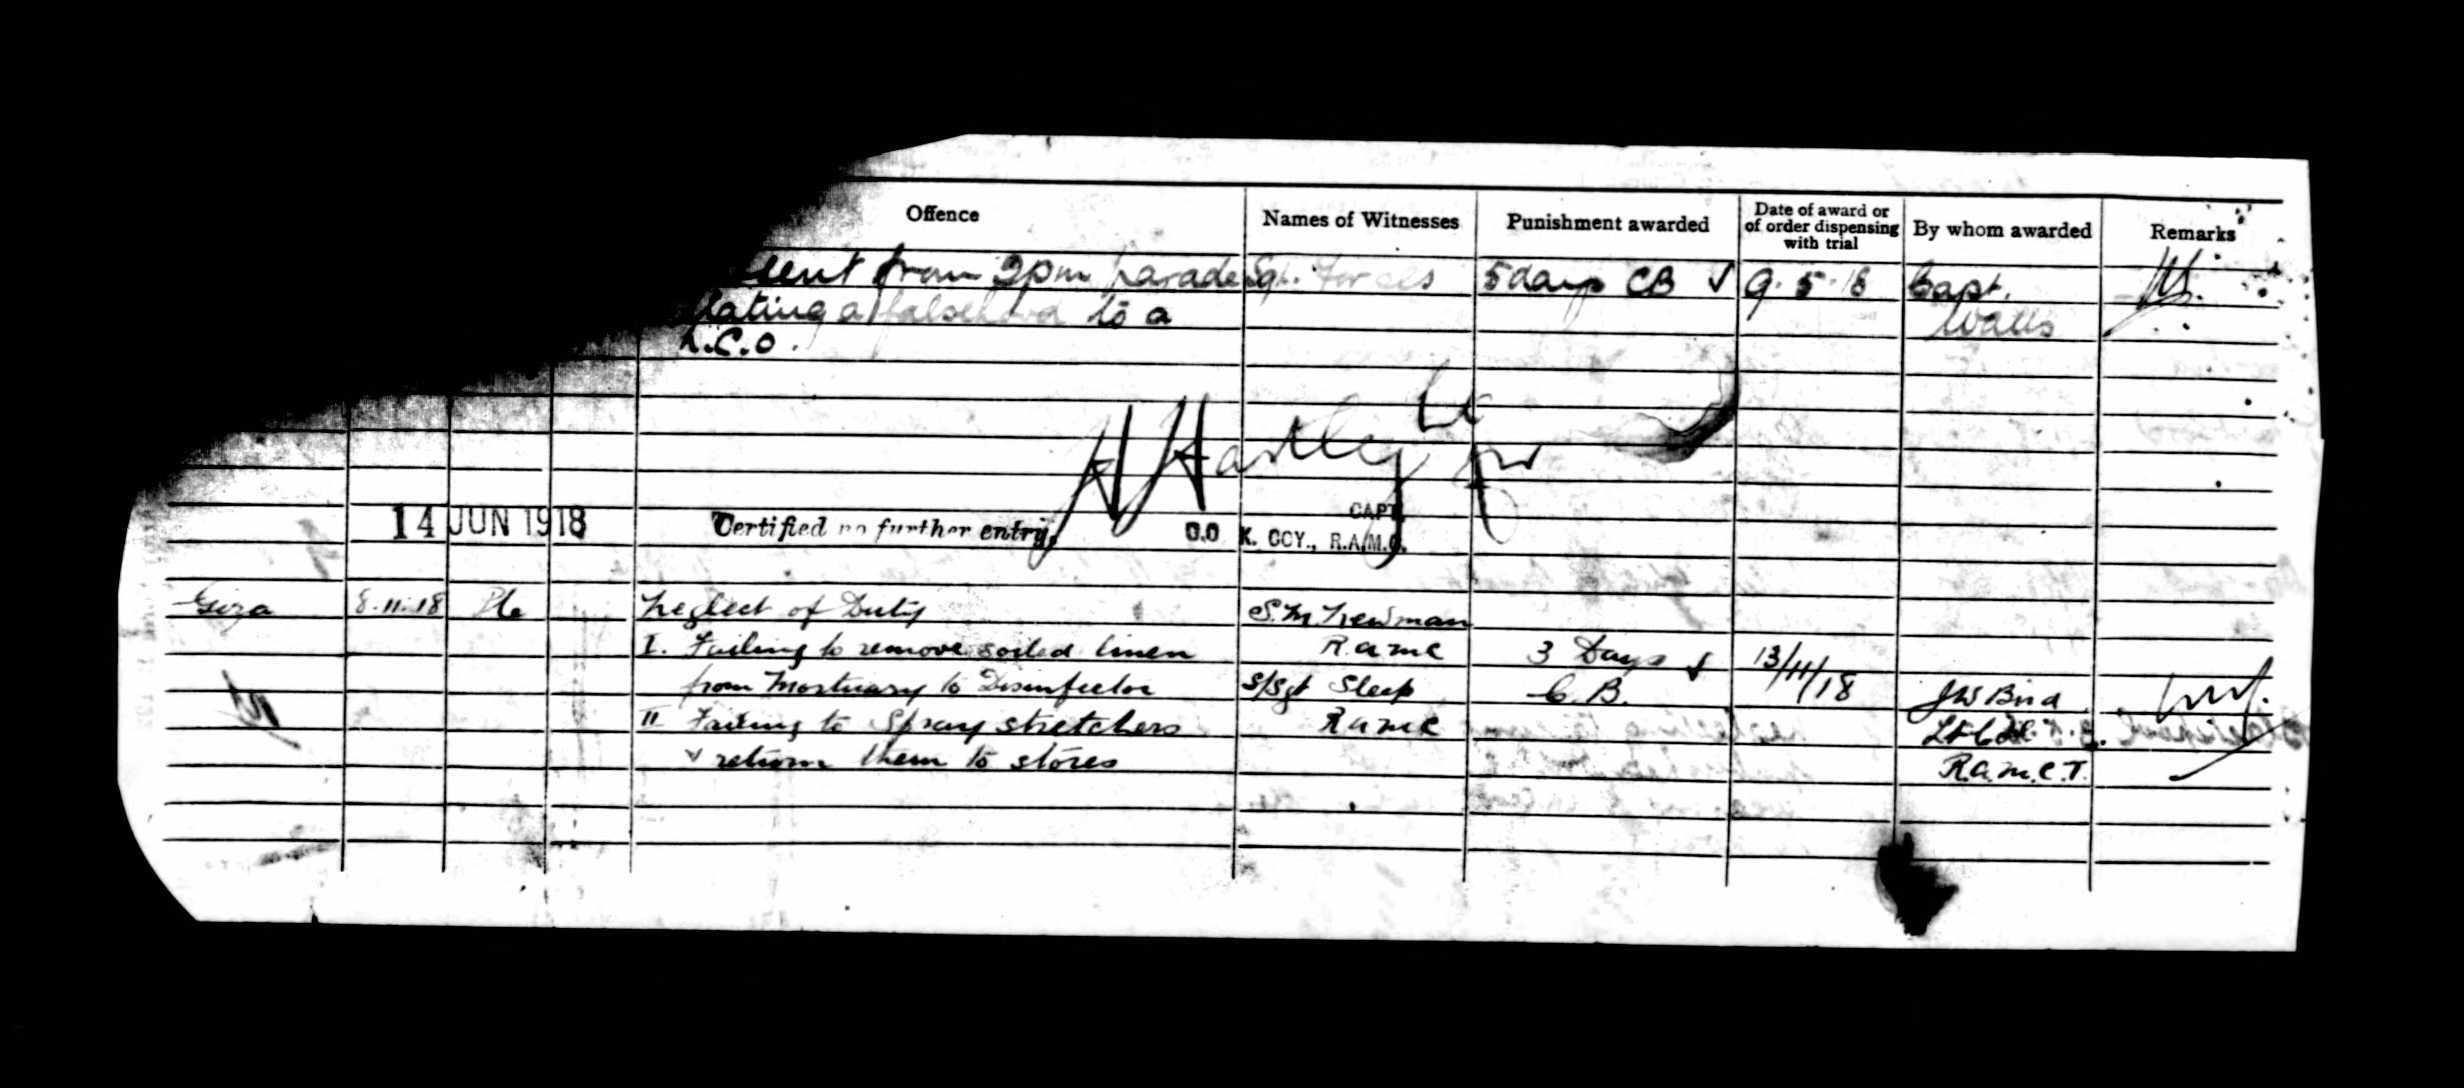 Offence Names of Witnesses Punishment awarded Date of award or of order dispensing with trial By whom awarded Remarks
from 2pm parade Sgt. 5 days CB 9.5.18 Capt.
a falsehood to a Watts
C.O.
Hartley
14 JUN 1918 Certified no further entry, CAPT.
O.O K. COY., R.A.M.C.
Giza 8.11.18 Pte Neglect of Duty S.M. Newman
I. Failing to remove soiled linen R.A.M.C 3 Days 13/11/18
from Mortuary to Disinfector S/Sgt Sleep C.B. JW Bird
II Failing to Spray stretchers R.A.M.C Lt Col.
& return them to stores R.A.M.C.T.